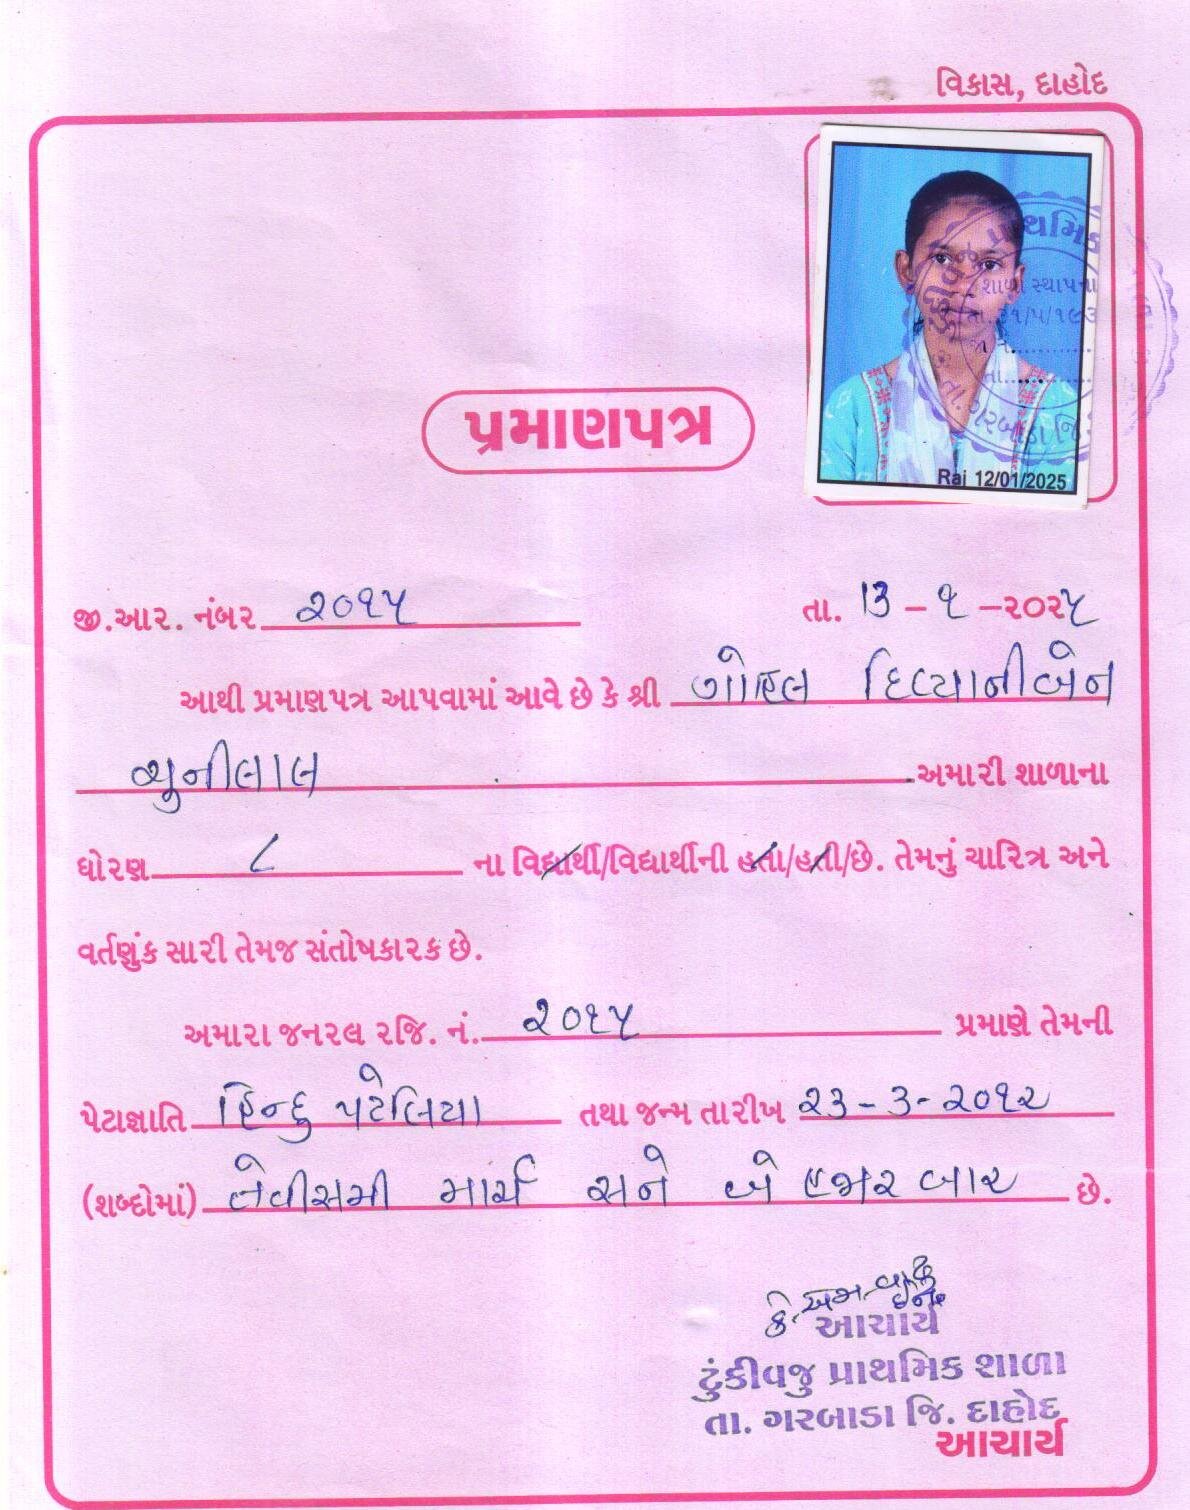 વિકાસ, દાહોદ
પ્રાથમિક
શાળા સ્થાપના
તા. ૩૧/૫/૧૯૩
તા. ગરબાડા જિ.
Raj 12/01/2025
પ્રમાણપત્ર
જી.આર. નંબર ૨૦૧૫ તા. 13 - ૧ -૨૦૨૫
આથી પ્રમાણપત્ર આપવામાં આવે છે કે શ્રી ગોહિલ દિવ્યાનીબેન
ચુનીલાલ અમારી શાળાના
ધોરણ ૮ ના વિદ્યાર્થી/વિદ્યાર્થીની હતા/હતી/છે. તેમનું ચારિત્ર અને
વર્તણુંક સારી તેમજ સંતોષકારક છે.
અમારા જનરલ રજિ. નં. ૨૦૧૫ પ્રમાણે તેમની
પેટાજ્ઞાતિ હિન્દુ પટેલિયા તથા જન્મ તારીખ ૨૩-૩-૨૦૧૨
(શબ્દોમાં) તેવીસમી માર્ચ સને બે હજાર બાર છે.
આચાર્ય
ટુંકીવજુ પ્રાથમિક શાળા
તા. ગરબાડા જિ. દાહોદ
આચાર્ય